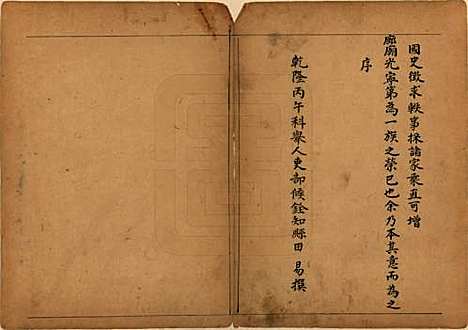 國史徵求軼事採諸家乘直可增
廊廟光寧第為一族之榮已也余乃本其意而為之
序
乾隆丙午科舉人吏部候銓知縣田易撰